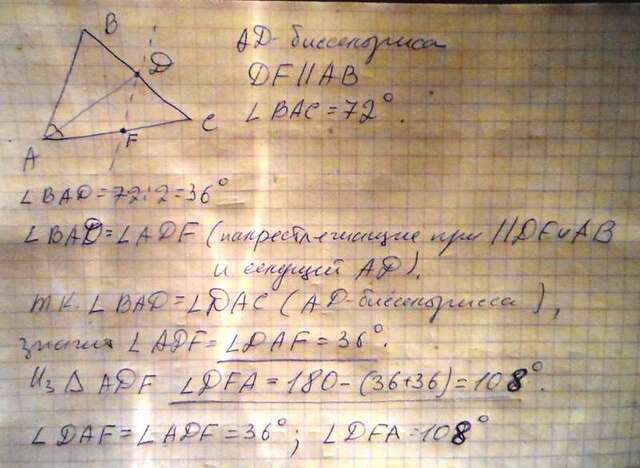 B
D
C
F
A
AD - биссектриса
DF || AB
∠ BAC = 72°.
∠ BAD = 72 : 2 = 36°
∠ BAD = ∠ ADF (накрест лежащие при || DF и AB
и секущей AD).
т.к. ∠ BAD = ∠ DAC (AD - биссектрисса),
значит ∠ ADF = ∠ DAF = 36°.
Из Δ ADF ∠ DFA = 180 - (36+36) = 108°.
∠ DAF = ∠ ADF = 36°; ∠ DFA = 108°